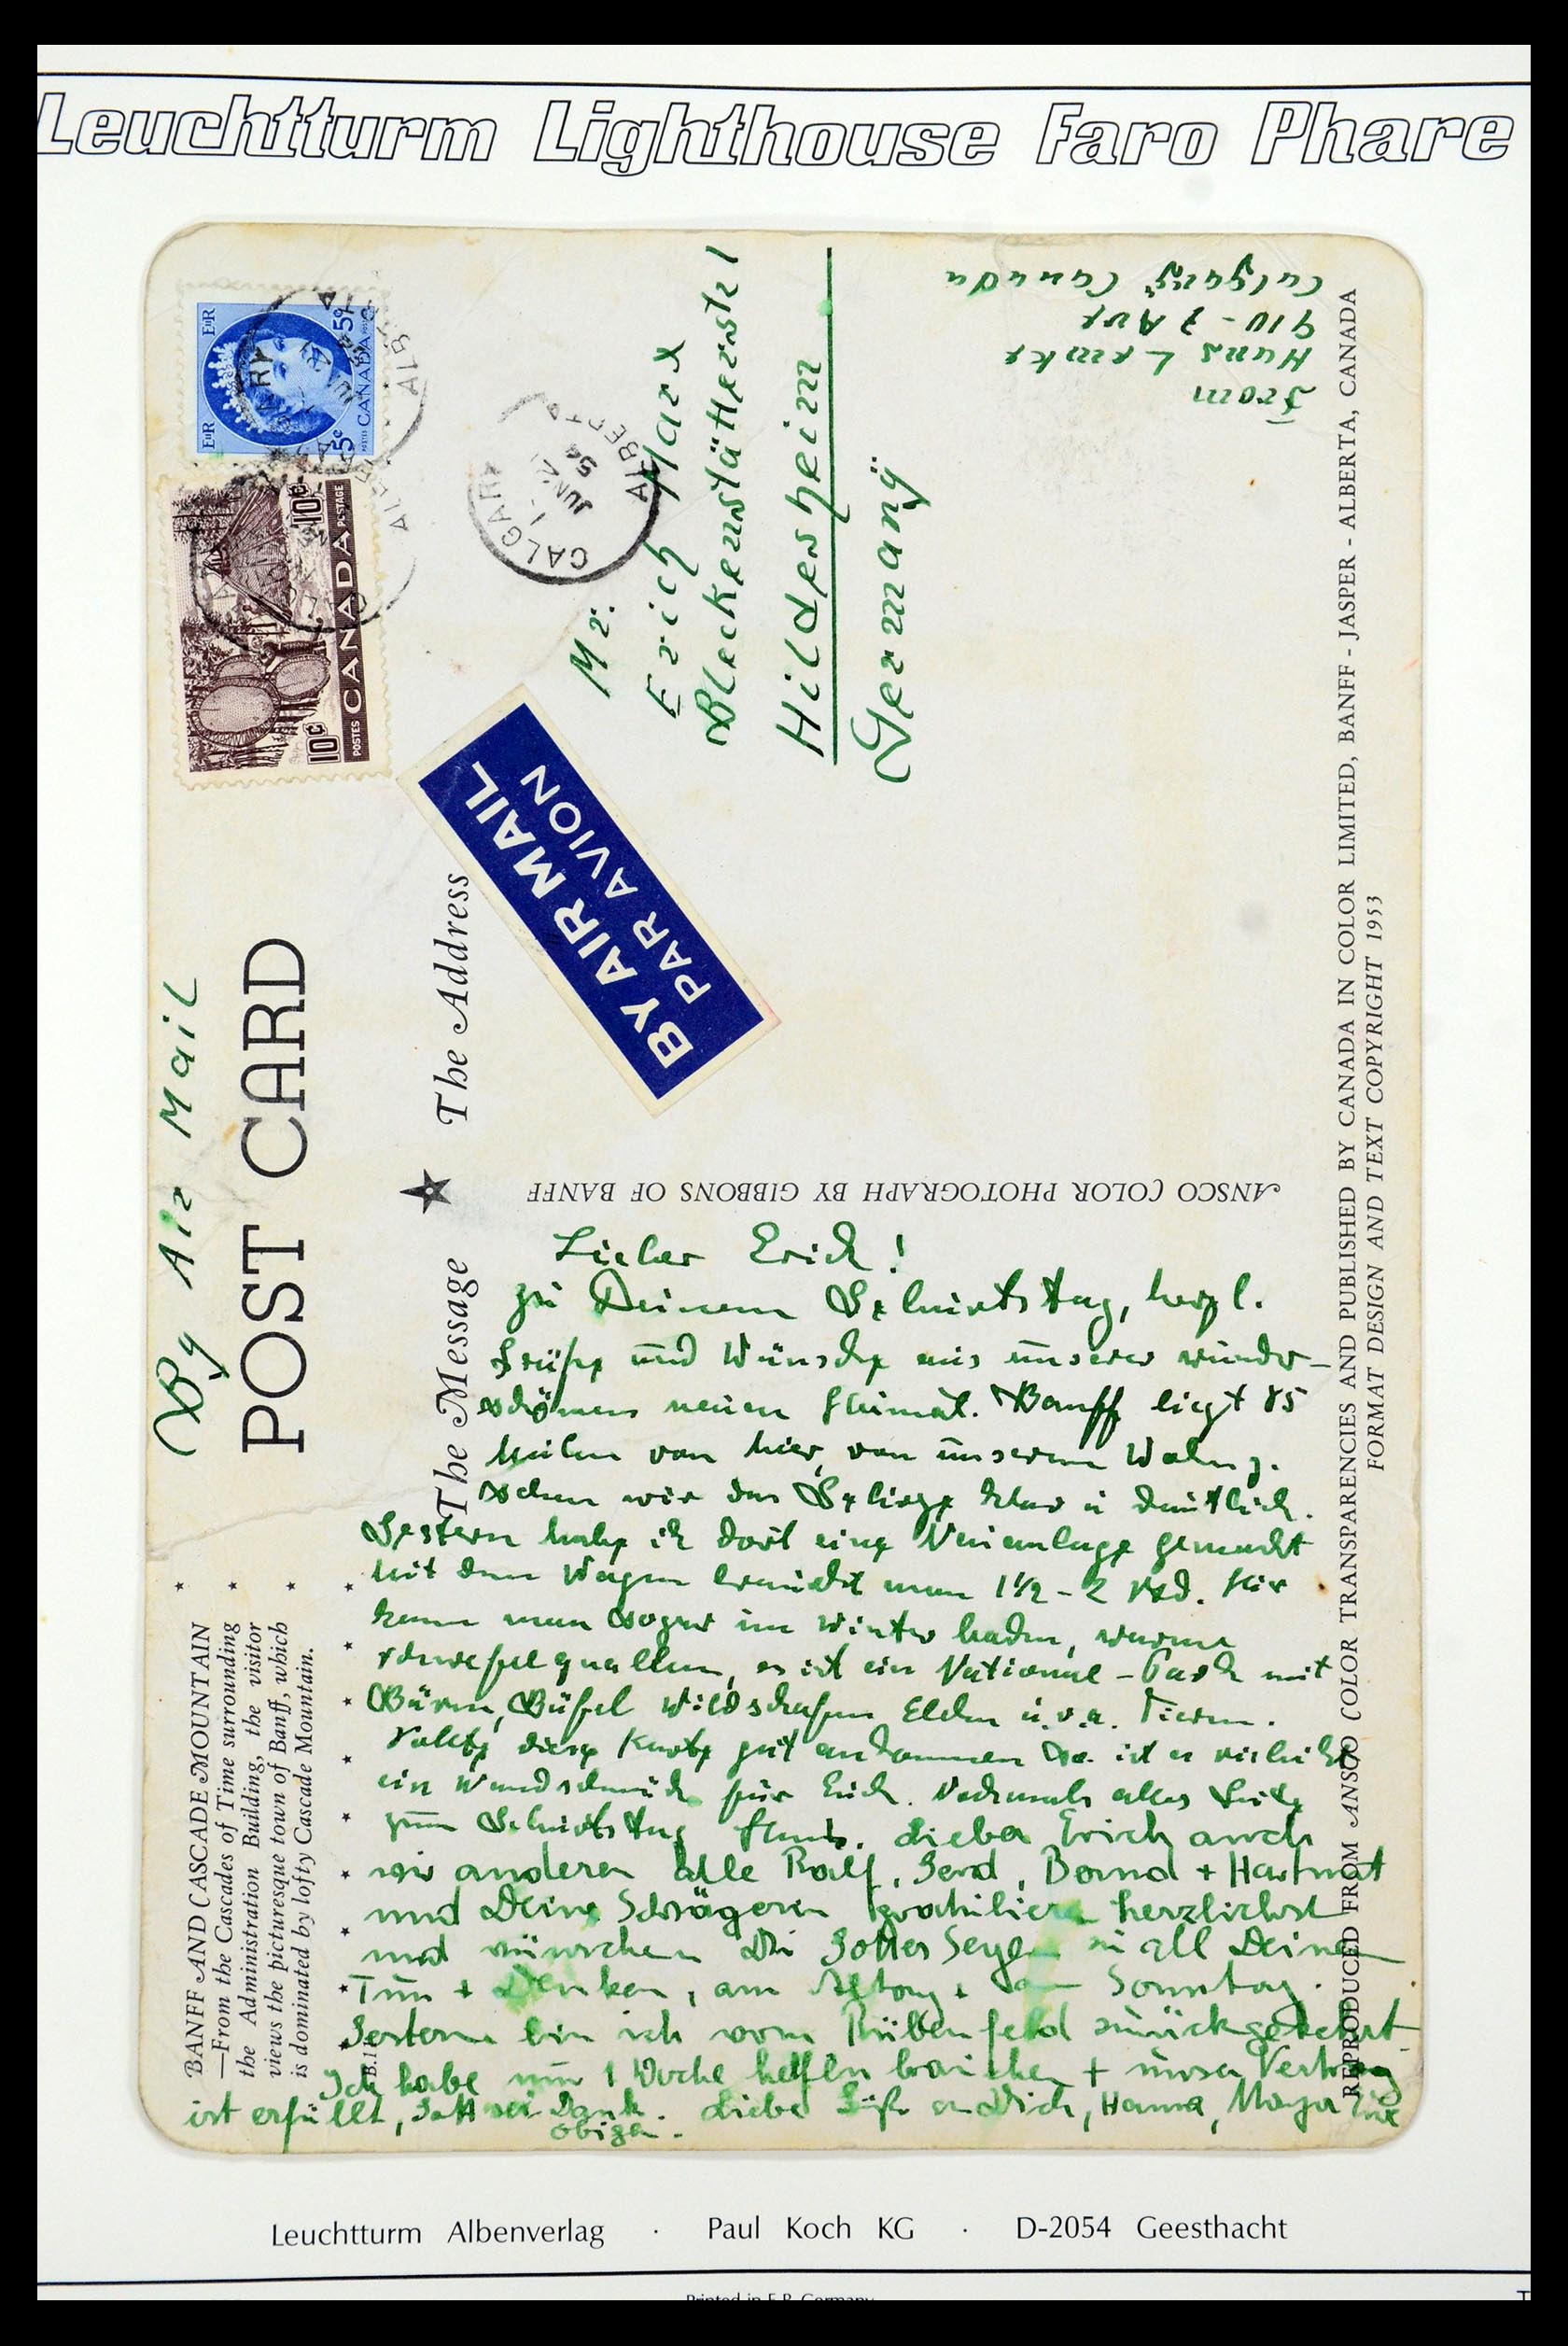 Leuchtturm Lighthouse Faro Phare
EIIR EIIR
5¢ 5¢
POSTES CANADA POSTAGE
10¢ 10¢
POSTES CANADA POSTAGE
CALGARY
JUN 21
54
ALBERTA
By Air Mail
POST CARD
The Address
The Message
BY AIR MAIL
PAR AVION
Mr.
Erich Marx
Bleckenstätterstr 1
Hildesheim
Germany
From
Hans Lemke
910 - 7 Ave
Calgary Canada
ANSCO COLOR PHOTOGRAPH BY GIBBONS OF BANFF
BANFF AND CASCADE MOUNTAIN
—From the Cascades of Time surrounding
the Administration Building, the visitor
views the picturesque town of Banff, which
is dominated by lofty Cascade Mountain.
Lieber Erich!
zu Deinem Geburtstag, herzl.
Grüße und Wünsche aus unserer wunder-
schönen neuen Heimat. Banff liegt 85
Meilen von hier, von unserem Wohnz.
sehen wir das Gebirge klar u deutlich.
Gestern habe ich dort eine Neuanlage gemacht
Mit dem Wagen braucht man 1½ - 2 Std. Hier
kann man sogar im Winter baden, warme
Schwefelquellen, es ist ein National-Park mit
Bären, Büffel Wildschafen Elchen u.v.a. Tieren.
Sollte diese Karte gut ankommen so ist es vielleicht
ein Wandschmuck für Euch. Nochmals alles Gute
zum Geburtstag Hans. Lieber Erich auch
wir anderen alle Ralf, Gerd, Bernd + Hartmut
und Deine Schwägerin gratulieren herzlichst
und wünschen Dir Gottes Segen in all Deinem
Tun + Denken, am Alltag + am Sonntag.
Gestern bin ich vom Rübenfeld zurückgekehrt
Ich habe nur 1 Woche helfen brauchen + unser Vertrag
ist erfüllt, Gott sei Dank. Liebe Grüße an Dich, Hanna,
obigen.
REPRODUCED FROM ANSCO COLOR TRANSPARENCIES AND PUBLISHED BY CANADA IN COLOR LIMITED, BANFF - JASPER - ALBERTA, CANADA
FORMAT DESIGN AND TEXT COPYRIGHT 1953
Leuchtturm Albenverlag · Paul Koch KG · D-2054 Geesthacht